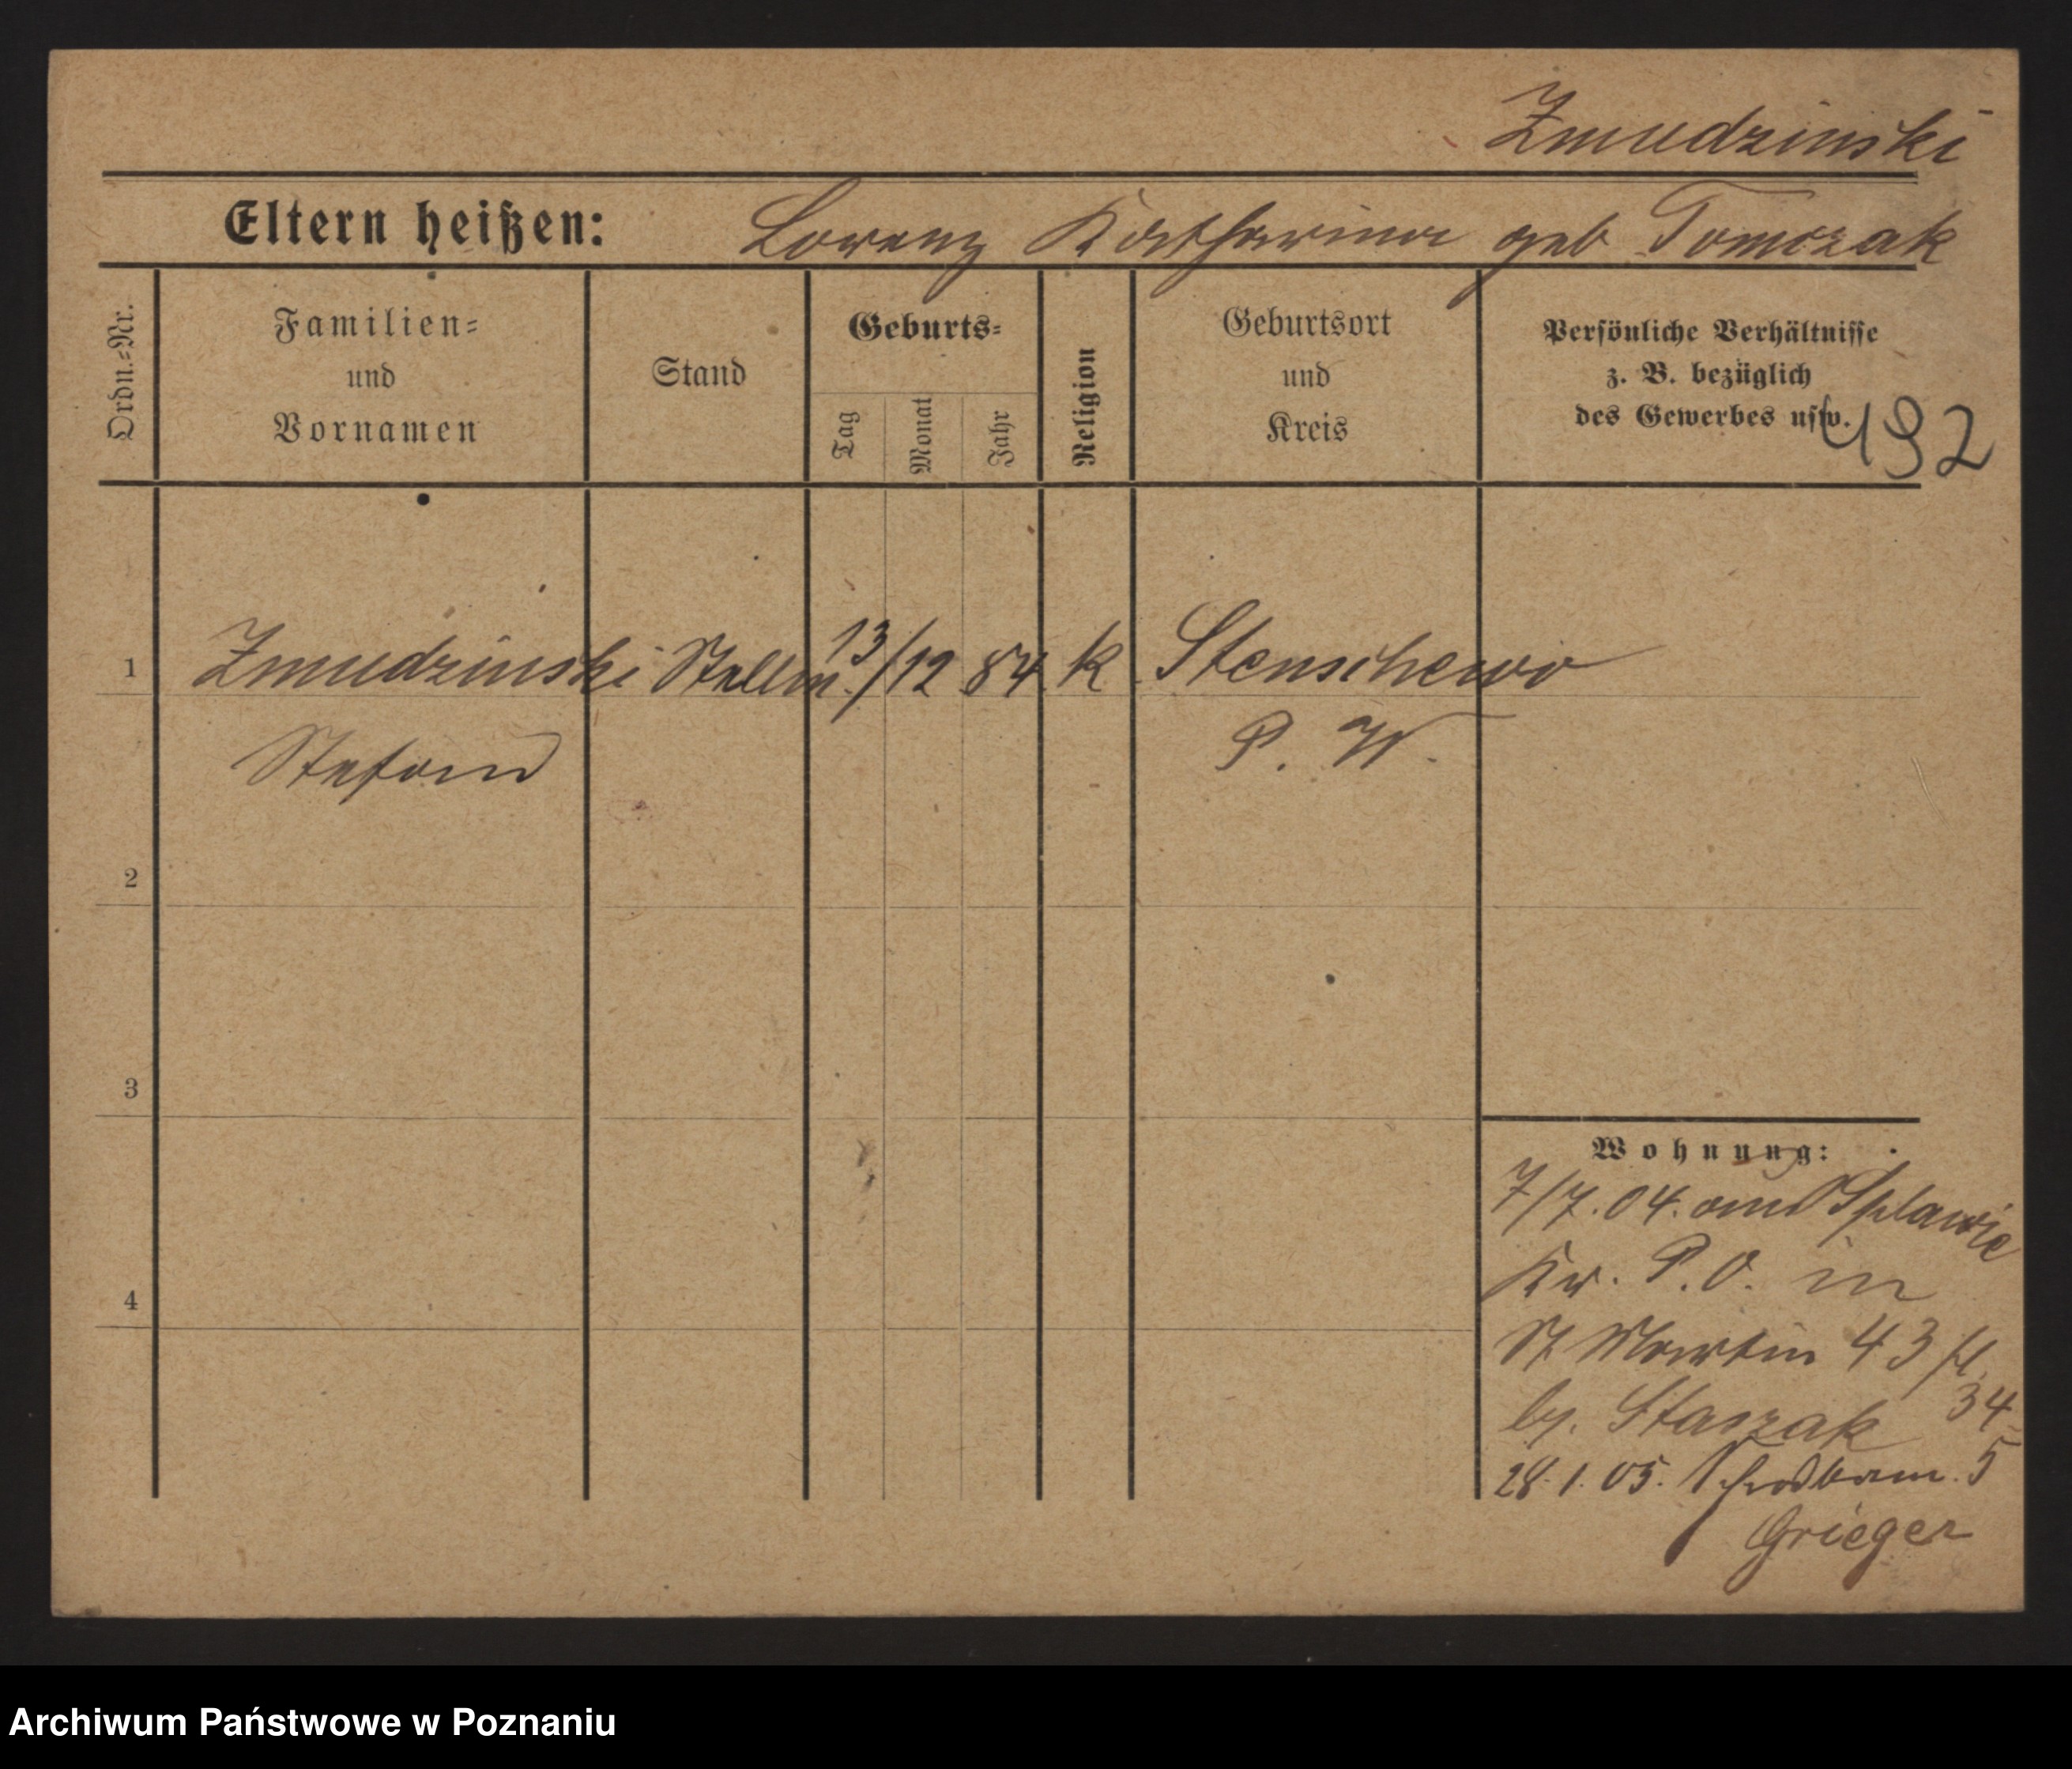 Zmudzinski
Eltern heißen: Lorenz Katharina geb Tomczak
Ordn.-Nr.
Familien-
und
Vornamen
Stand
Geburts-
Tag
Monat
Jahr
Religion
Geburtsort
und
Kreis
Persönliche Verhältnisse
z. B. bezüglich
des Gewerbes usw.
492
1 Zmudzinski Stellm. 13/12 84 k Stenschewo
Stefan P. W.
2
3
4
Wohnung:
7/7. 04. aus Splawie
Kr. P. O. in
St Martin 43 fl
by. Staszak 34
28. 1. 05. 5
Grieger
Archiwum Państwowe w Poznaniu